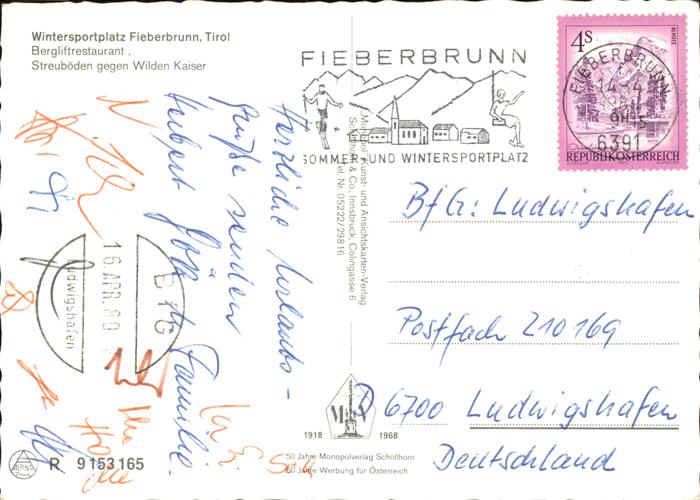 Wintersportplatz Fieberbrunn, Tirol
Bergliftrestaurant
Streuböden gegen Wilden Kaiser
FIEBERBRUNN
SOMMER- UND WINTERSPORTPLATZ
4S
ALMSEE
FIEBERBRUNN
14.-4
9H-5
6391
REPUBLIK ÖSTERREICH
Herzliche Urlaubs-
grüße senden
Hubert
Familie.
Monopol Kunst- und Ansichtskarten-Verlag
& Co., Innsbruck, Colingasse 6
Tel. Nr. 05222/29816
BfG: Ludwigshafen
Postfach 210169
D 6700 Ludwigshafen
Deutschland
16. APR. 80
BfG
Ludwigshafen
1918 M 1968
50 Jahre Monopolverlag Schöllhorn
50 Jahre Werbung für Österreich
ALPINA
R 9153165